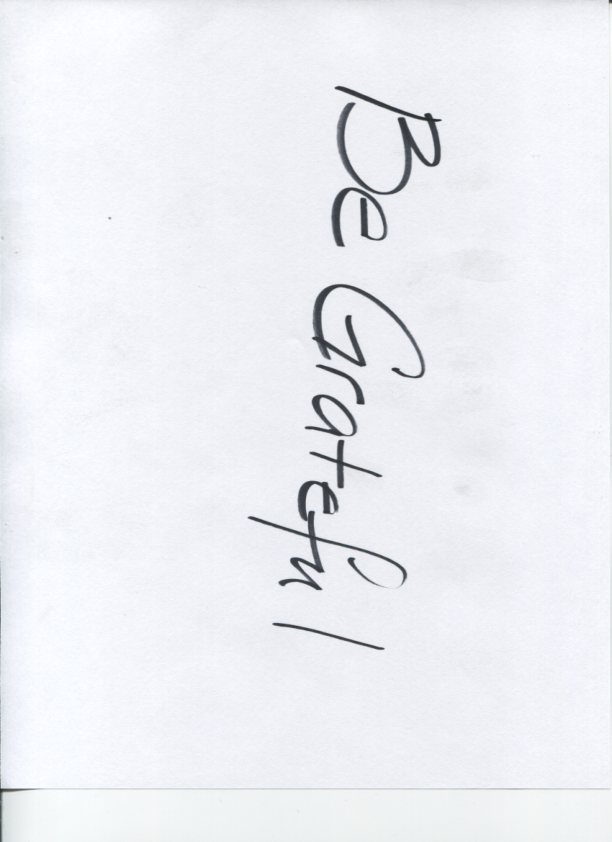 Be Grateful